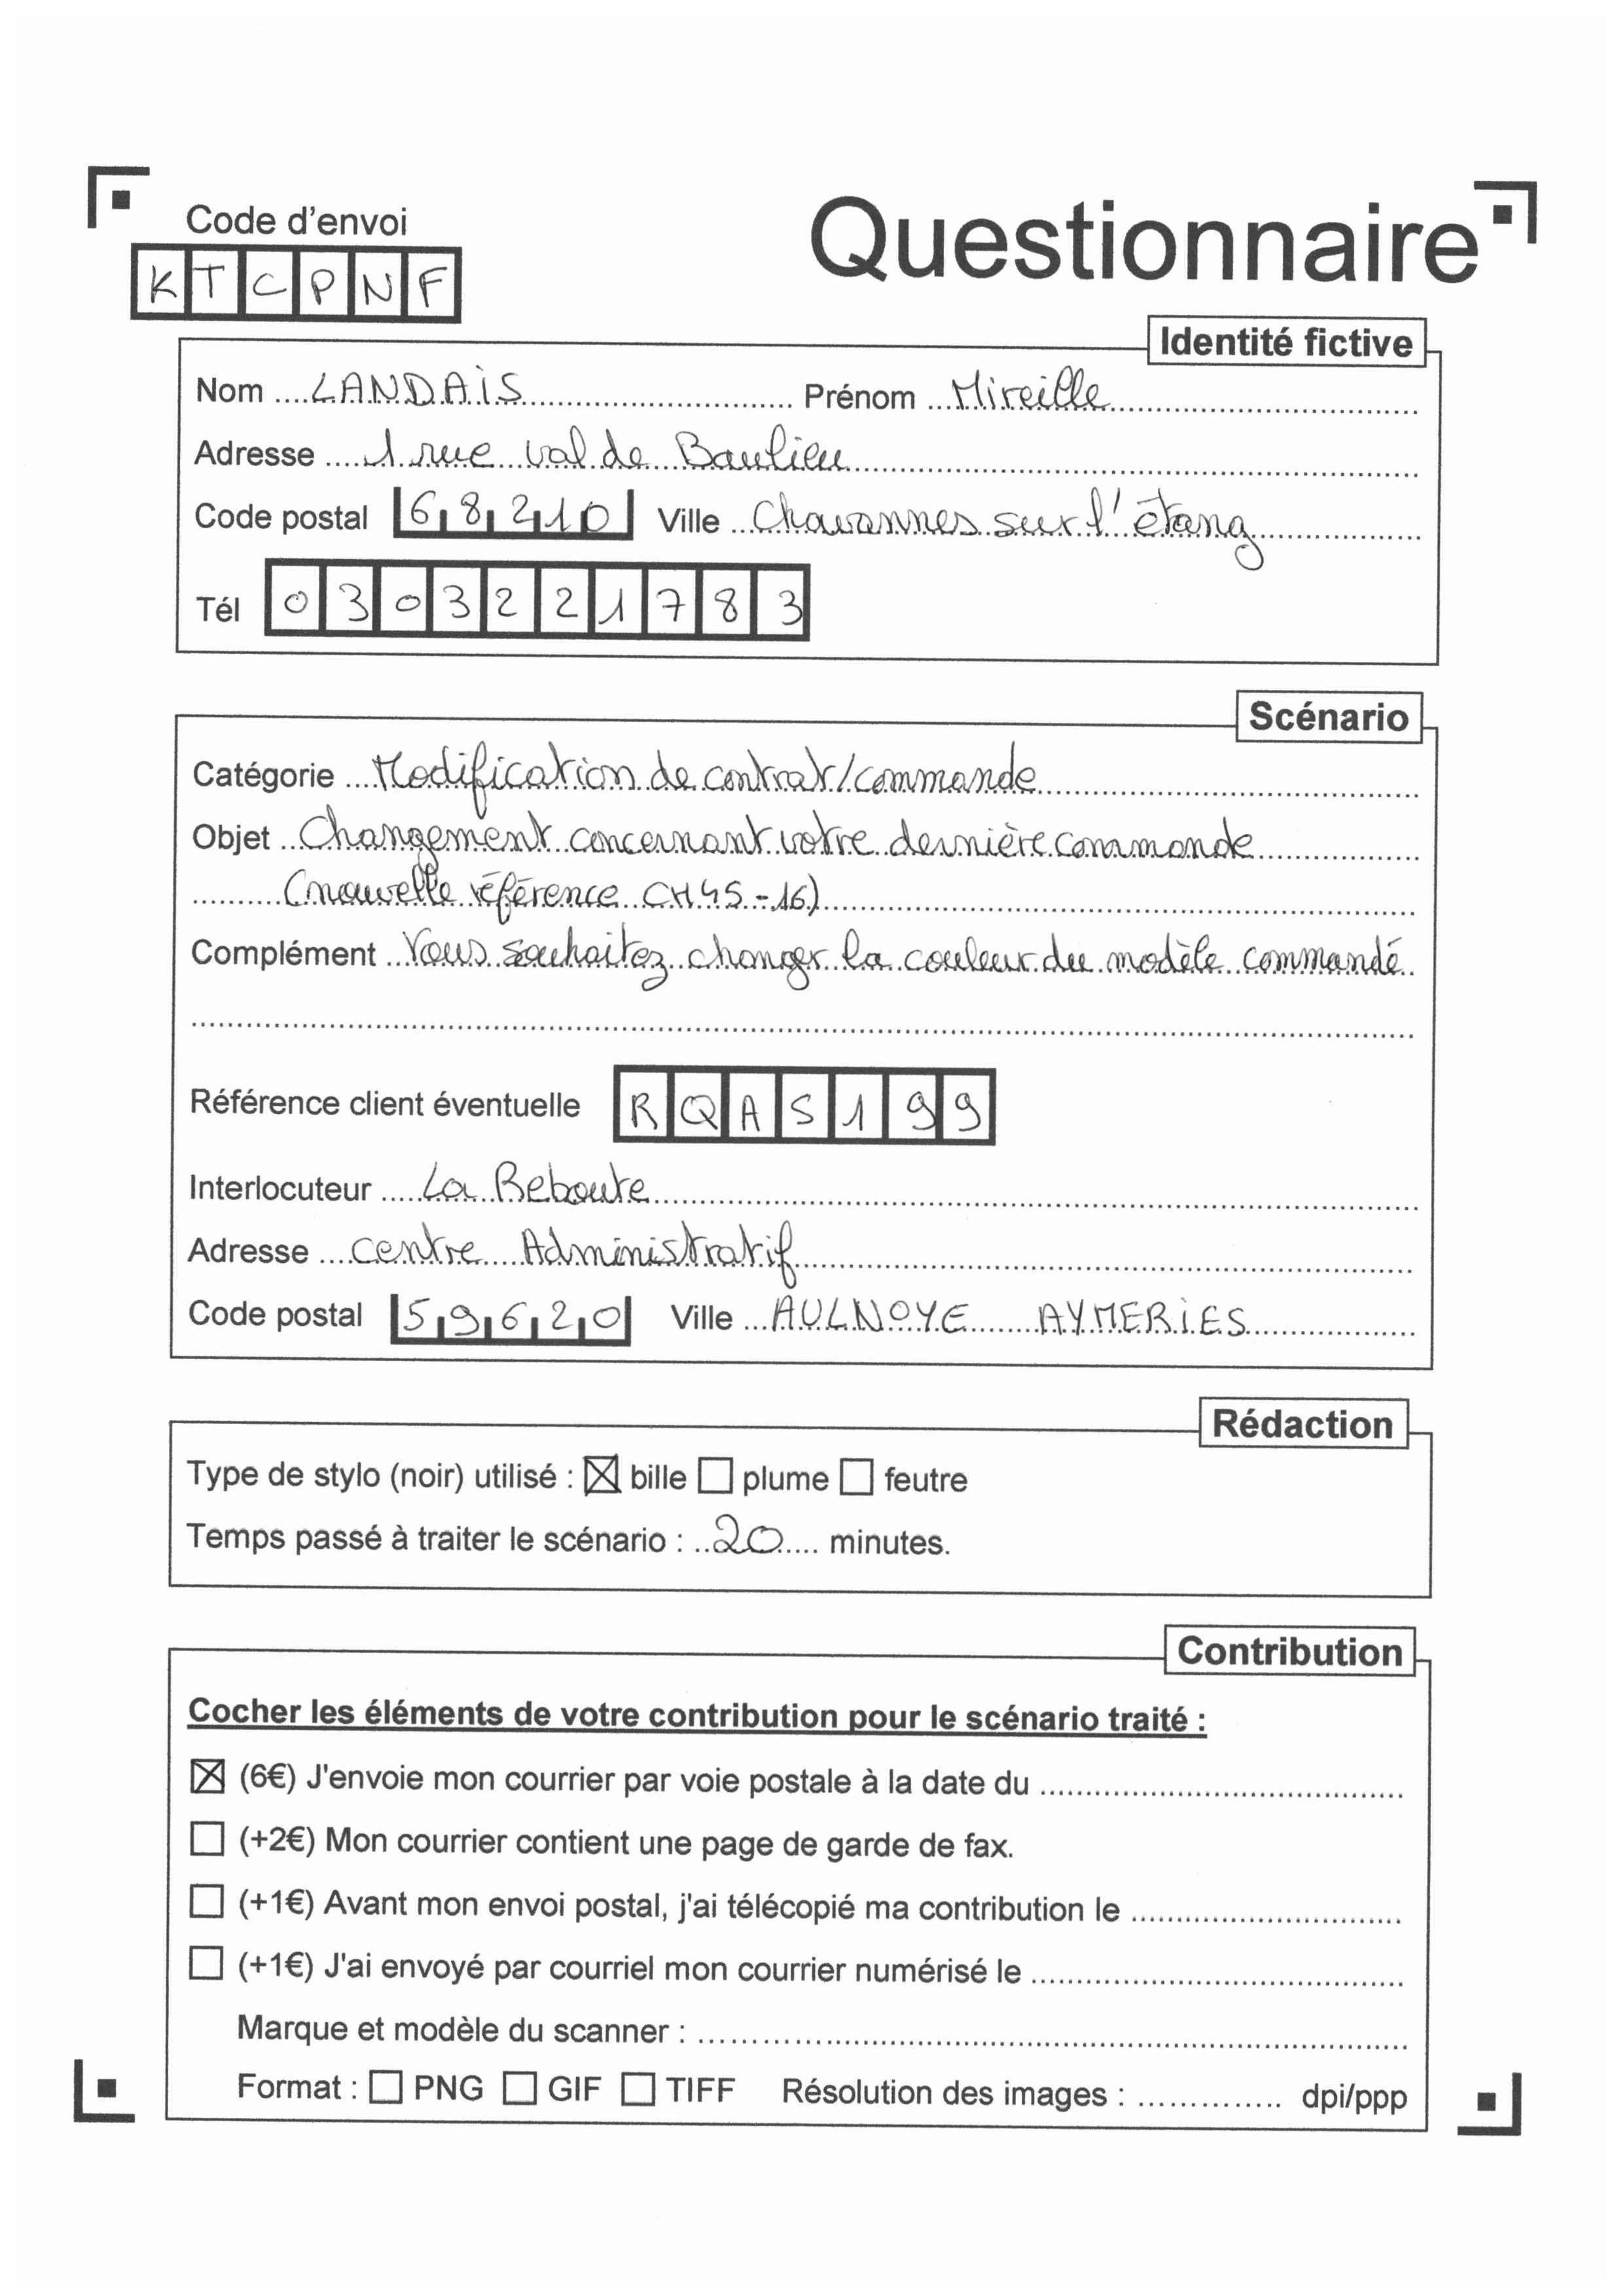 Code d'envoi
KTCPNF
Questionnaire
Identité fictive
Nom LANDAIS Prénom Mireille
Adresse 1 rue val de Baulieu
Code postal 68210 Ville Chavannes sur l'étang
Tél 0303221783
Scénario
Catégorie Modification de contrat/commande
Objet Changement concernant votre dernière commande
(nouvelle référence CH45-16)
Complément Vous souhaitez changer la couleur du modèle commandé
Référence client éventuelle RQAS199
Interlocuteur La Reboute
Adresse centre Administratif
Code postal 59620 Ville AULNOYE AYMERIES
Rédaction
Type de stylo (noir) utilisé : ☒ bille ☐ plume ☐ feutre
Temps passé à traiter le scénario : 20 minutes.
Contribution
Cocher les éléments de votre contribution pour le scénario traité :
☒ (6€) J'envoie mon courrier par voie postale à la date du
☐ (+2€) Mon courrier contient une page de garde de fax.
☐ (+1€) Avant mon envoi postal, j'ai télécopié ma contribution le
☐ (+1€) J'ai envoyé par courriel mon courrier numérisé le
Marque et modèle du scanner :
Format : ☐ PNG ☐ GIF ☐ TIFF Résolution des images : dpi/ppp